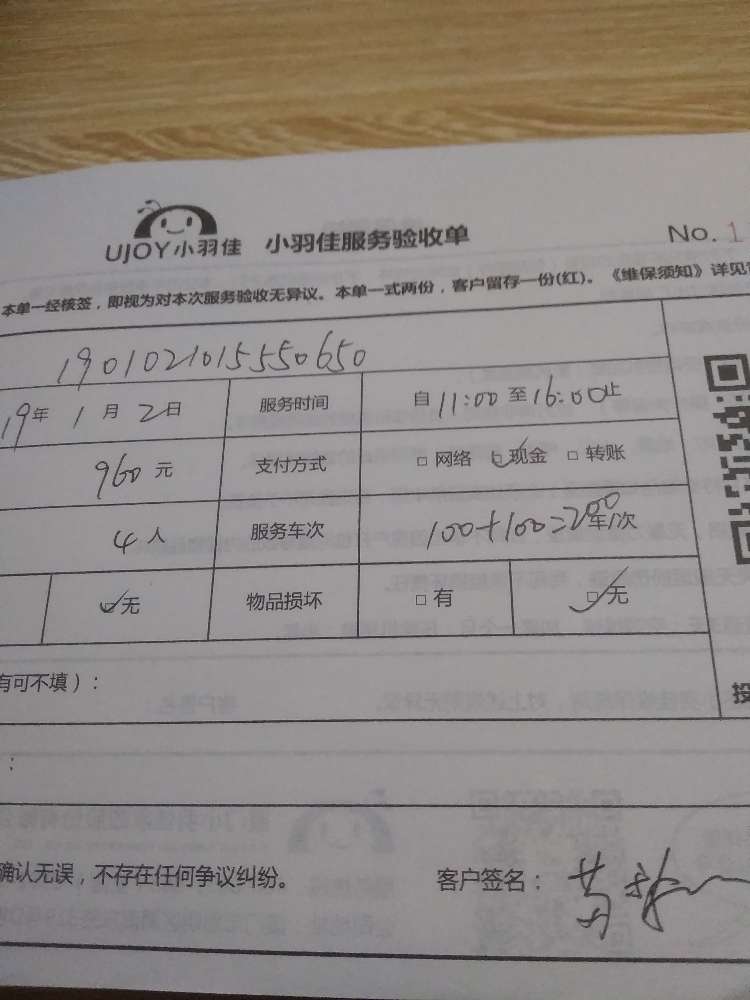 UJOY小羽佳 小羽佳服务验收单 No. 1
本单一经核签，即视为对本次服务验收无异议。本单一式两份，客户留存一份(红)。《维保须知》详见
1901021015550650
19年 1月 2日 服务时间 自 11:00 至 16:00 止
960 元 支付方式 □ 网络 □ 现金 □ 转账
4 人 服务车次 100+100=200 车/次
□ 无 物品损坏 □ 有 □ 无
有可不填）：
投
：
确认无误，不存在任何争议纠纷。 客户签名： 黄